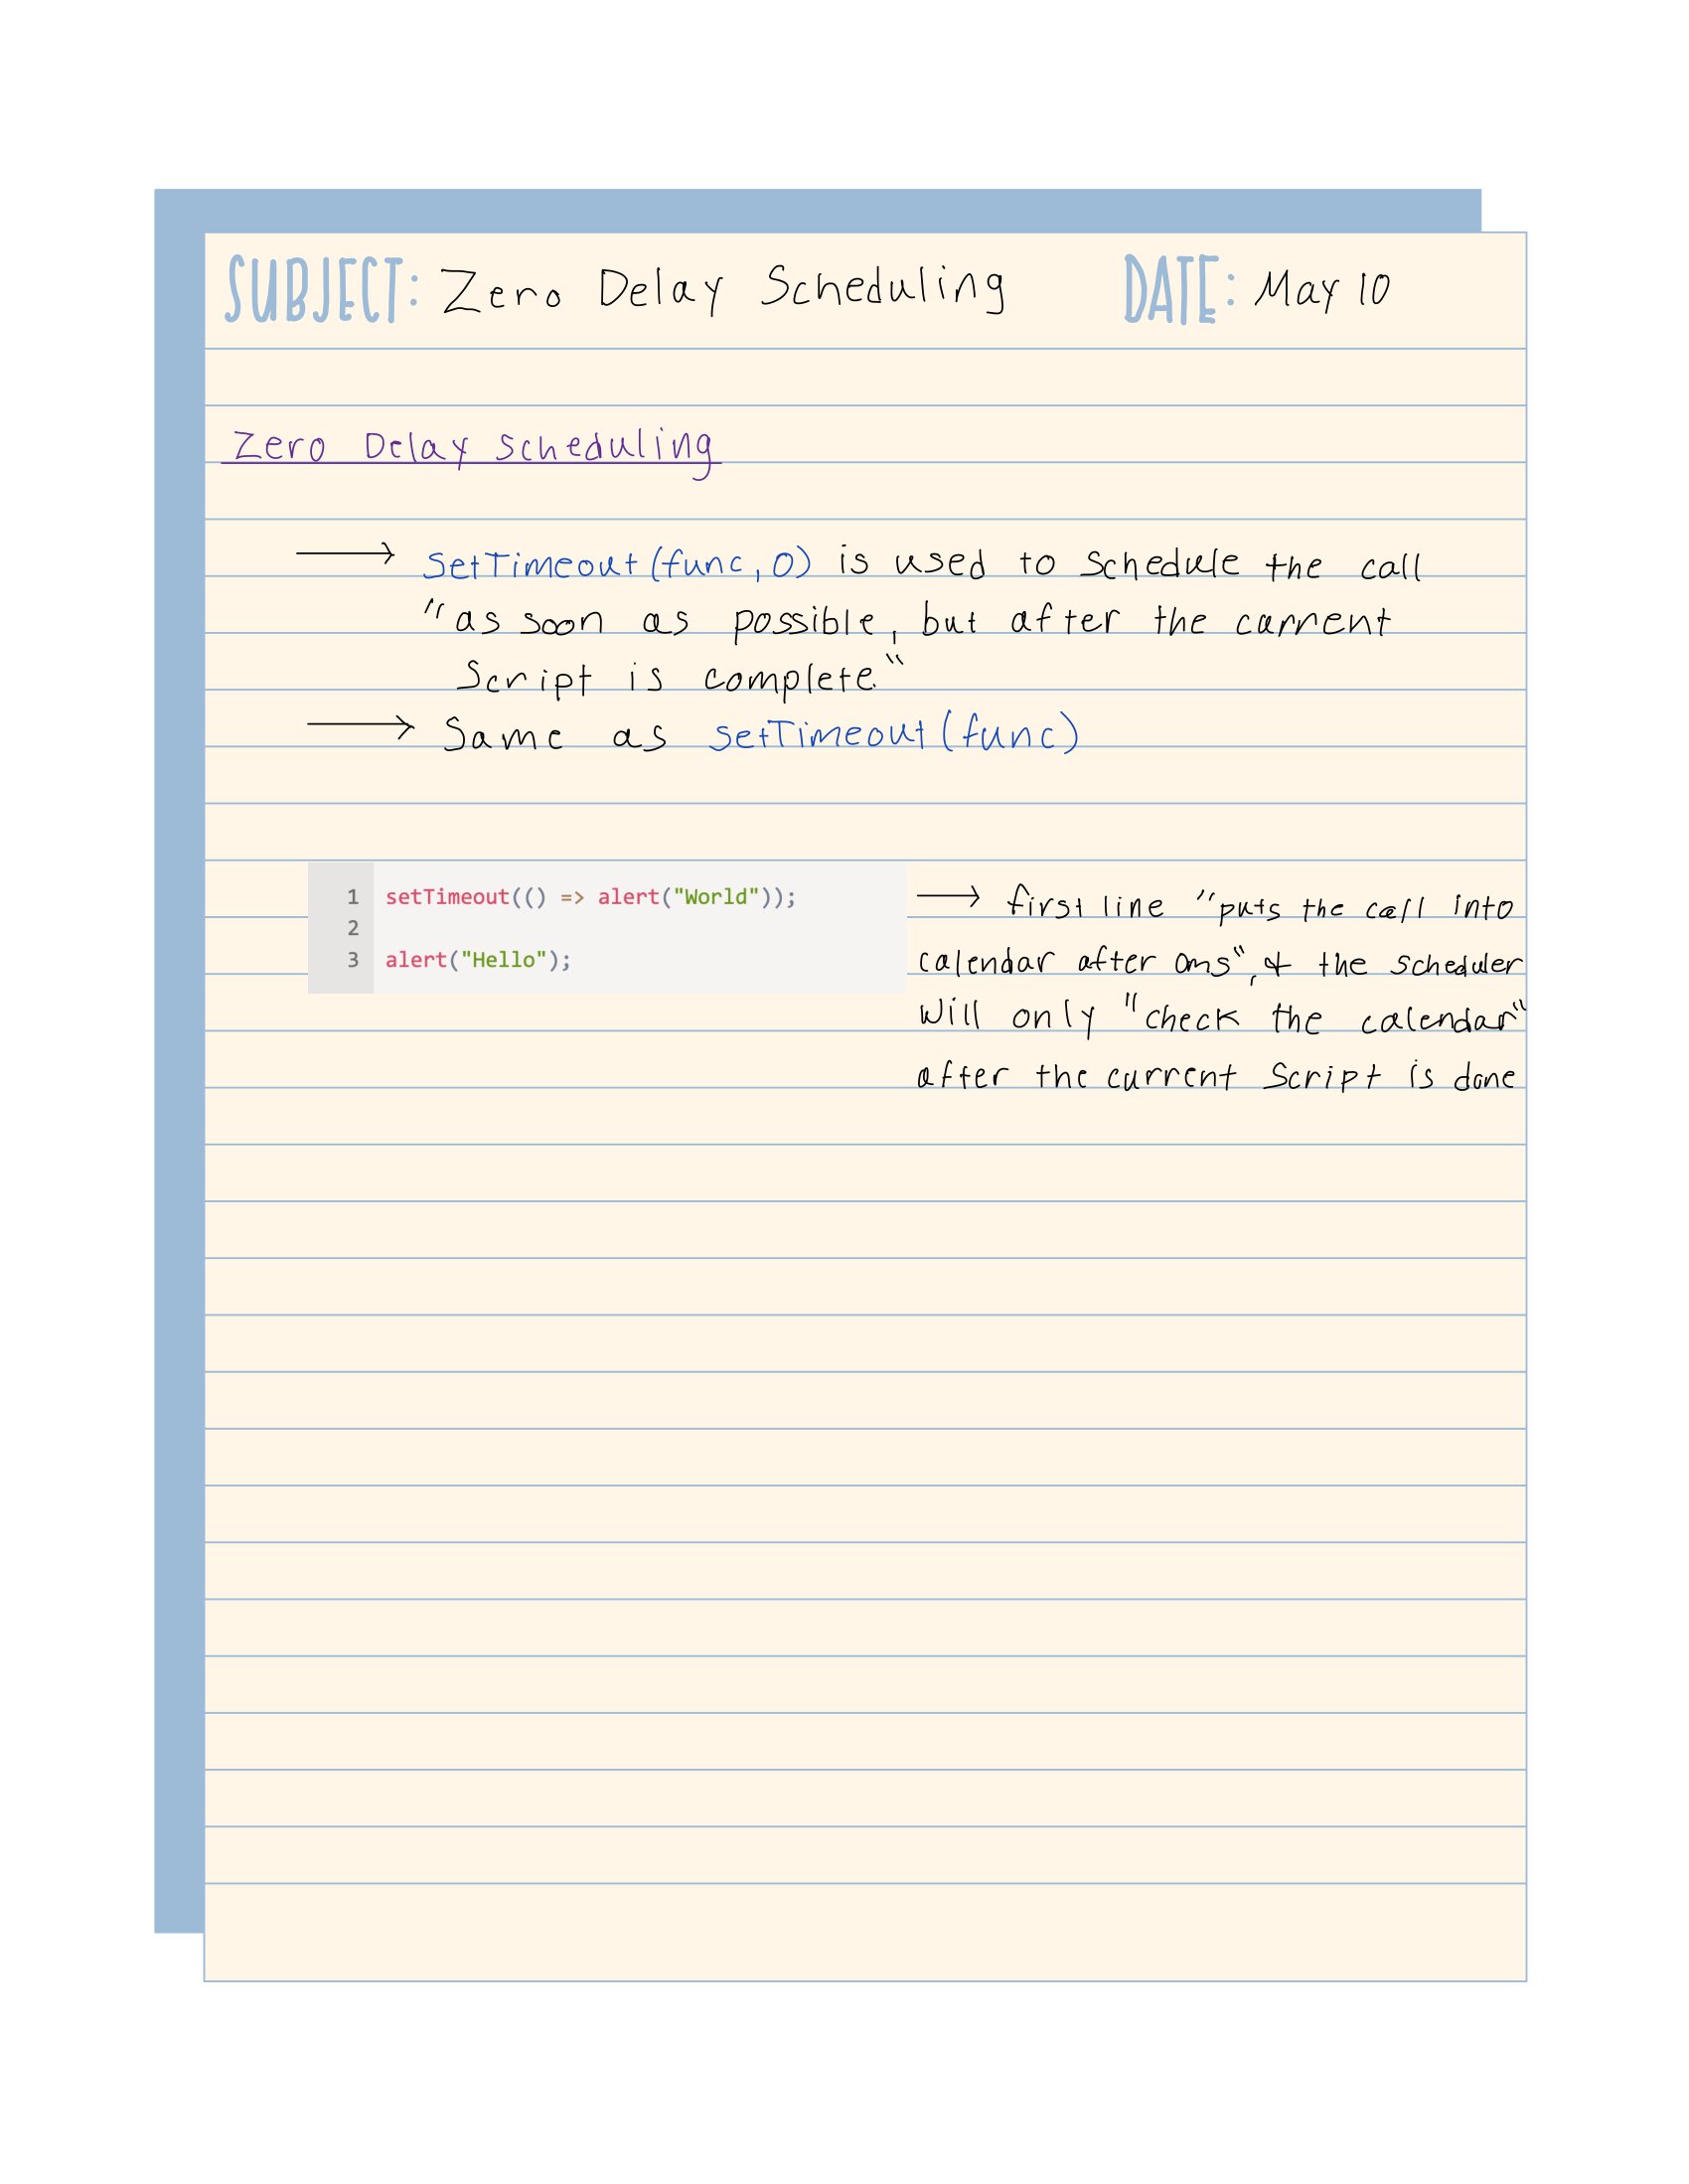 SUBJECT: Zero Delay Scheduling DATE: May 10
Zero Delay Scheduling
→ setTimeout(func, 0) is used to schedule the call
"as soon as possible, but after the current
script is complete."
→ Same as setTimeout(func)
1 setTimeout(() => alert("World"));
2
3 alert("Hello");
→ first line "puts the call into
calendar after 0ms", & the scheduler
will only "check the calendar"
after the current script is done